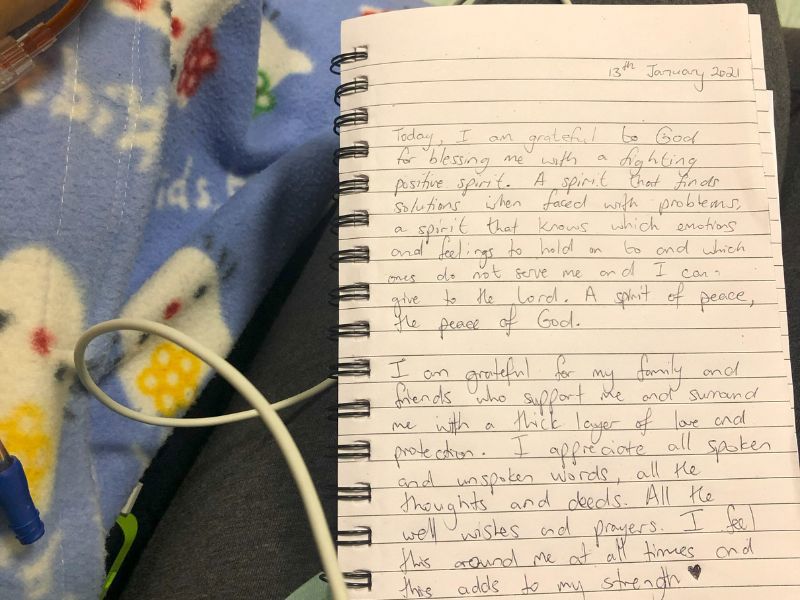 13th January 2021
Today, I am grateful to God
for blessing me with a fighting
positive spirit. A spirit that finds
solutions when faced with problems,
a spirit that knows which emotions
and feelings to hold on to and which
ones do not serve me and I can
give to the Lord. A spirit of peace,
the peace of God.
I am grateful for my family and
friends who support me and surround
me with a thick layer of love and
protection. I appreciate all spoken
and unspoken words, all the
thoughts and deeds. All the
well wishes and prayers. I feel
this around me at all times and
this adds to my strength ♥